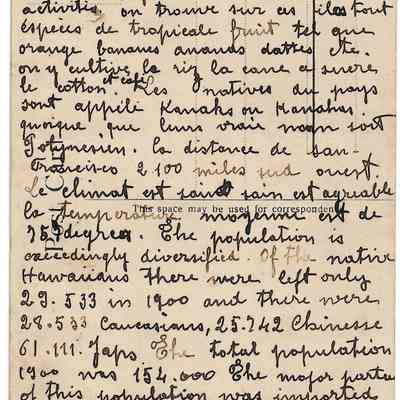 activités, on trouve sur ces iles tout
espèces de tropicale fruit tel que
orange bananes ananas dattes etc.
on y cultive le riz la cane a sucre
le cotton et café. Les natives du pays
sont appélé Kanaks ou Kanakas
quoique que leurs vraie noom soit
Polynesien. la distance de san-
francisco 2.100 miles sud ouest.
Le climat est saine sain est agreable
This space may be used for corresponden
la temperature moyenne est de
75 degrees The population is
exceedingly diversified. Of the native
Hawaiians there were left only
29.533 in 1900 and there were
28.533 Caucasians, 25.742 Chinesse
61.111. Japs The total population
1900 was 154.000 The major parte
of this population was imported